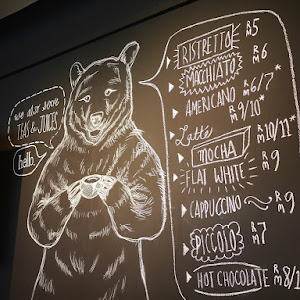 we also serve
TEAS & JUICES
hello.
RISTRETTO RM 5
MACCHIATO RM 6
AMERICANO RM 6/7*
Latté RM 9/10*
MOCHA RM 10/11*
FLAT WHITE RM 9
CAPPUCCINO RM 9
PICCOLO RM 7
HOT CHOCOLATE RM 8/1